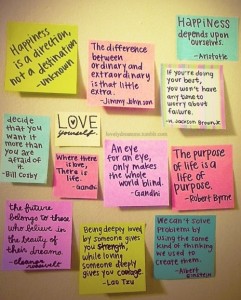 Happiness
is a direction,
not a destination
-unknown
The difference
between
ordinary and
extraordinary
is that little
extra.
-Jimmy Johnson
Happiness
depends upon
ourselves.
-Aristotle
If you're doing
your best,
you won't have
any time to
worry about
failure.
-H. Jackson Brown Jr.
decide
that you
want it
more than
you are
afraid of
it.
-Bill Cosby
LOVE
yourself.
Where there
is love,
There is
life.
-Gandhi
An eye
for an eye,
only makes
the whole
world blind.
-Gandhi
The purpose
of life is a
life of
purpose.
-Robert Byrne
the future
belongs to those
who believe in
the beauty of
their dreams
-eleanor
roosevelt
Being deeply loved
by someone gives
you strength,
while loving
someone deeply
gives you courage.
-Lao Tzu
We can't solve
problems by
using the same
kind of thinking
we used to
create them.
-Albert
Einstein